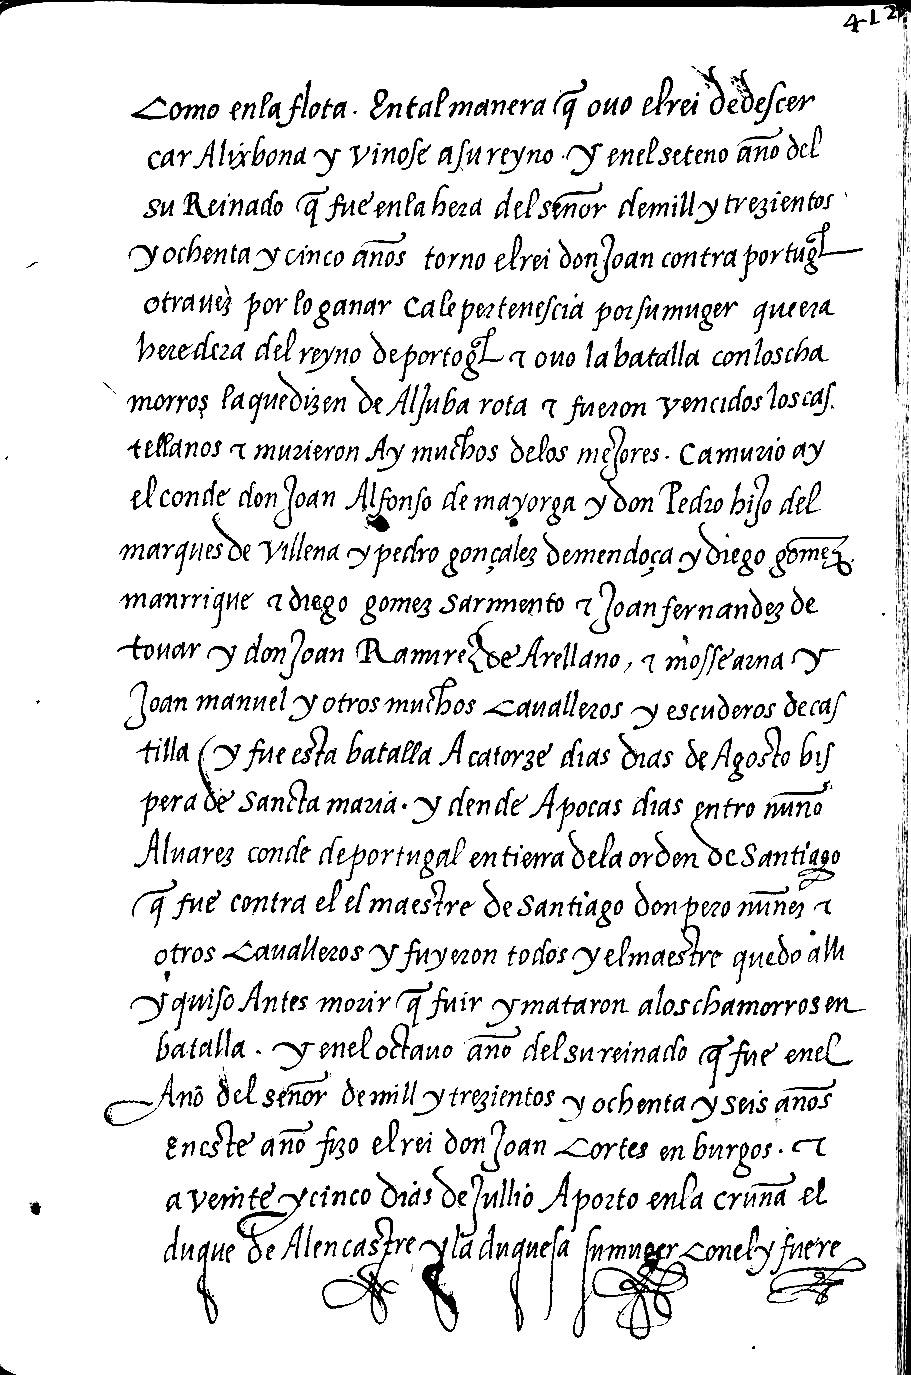 412
Como enla flota. En tal manera q̃ ouo el rei de descer
car A lixbona y vinose a su reyno. y en el seteno año del
su Reinado q̃ fue enla hera del señor de mill y trezientos
y ochenta y cinco años torno el rei don Joan contra portugl
otra uez por lo ganar Ca le pertenescia por su muger que era
heredera del reyno de portogl τ ouo la batalla con los cha
morros la que dizen de Aljuba rota τ fueron vencidos los cas
tellanos τ murieron Ay muchos delos mejores. Ca murio ay
el conde don Joan Alfonso de mayorga y don Pedro hijo del
marques de Villena y pedro gonçalez de mendoça y diego gomez
manrrique τ diego gomez sarmento τ Joan fernandez de
touar y don Joan Ramirez de Arellano, τ mosse arna y
Joan manuel y otros muchos Caualleros y escuderos de cas
tilla (y fue esta batalla A catorze dias dias de Agosto bis
pera de Sancta maria. y dende A pocas dias entro nuño
Aluarez conde de portugal en tierra dela orden de Santiago
q̃ fue contra el el maestre de Santiago don pero nuñez τ
otros Caualleros y fuyeron todos y el maestre quedo alli
y quiso Antes morir q̃ fuir y mataron a los chamorros en
batalla. y en el octauo año del su reinado q̃ fue en el
Año del señor de mill y trezientos y ochenta y seis años
En este año fizo el rei don Joan Cortes en burgos. τ
a veinte y cinco dias de Jullio Aporto enla cruña el
duque de Alencastre y la duquesa su muger con el y fuere